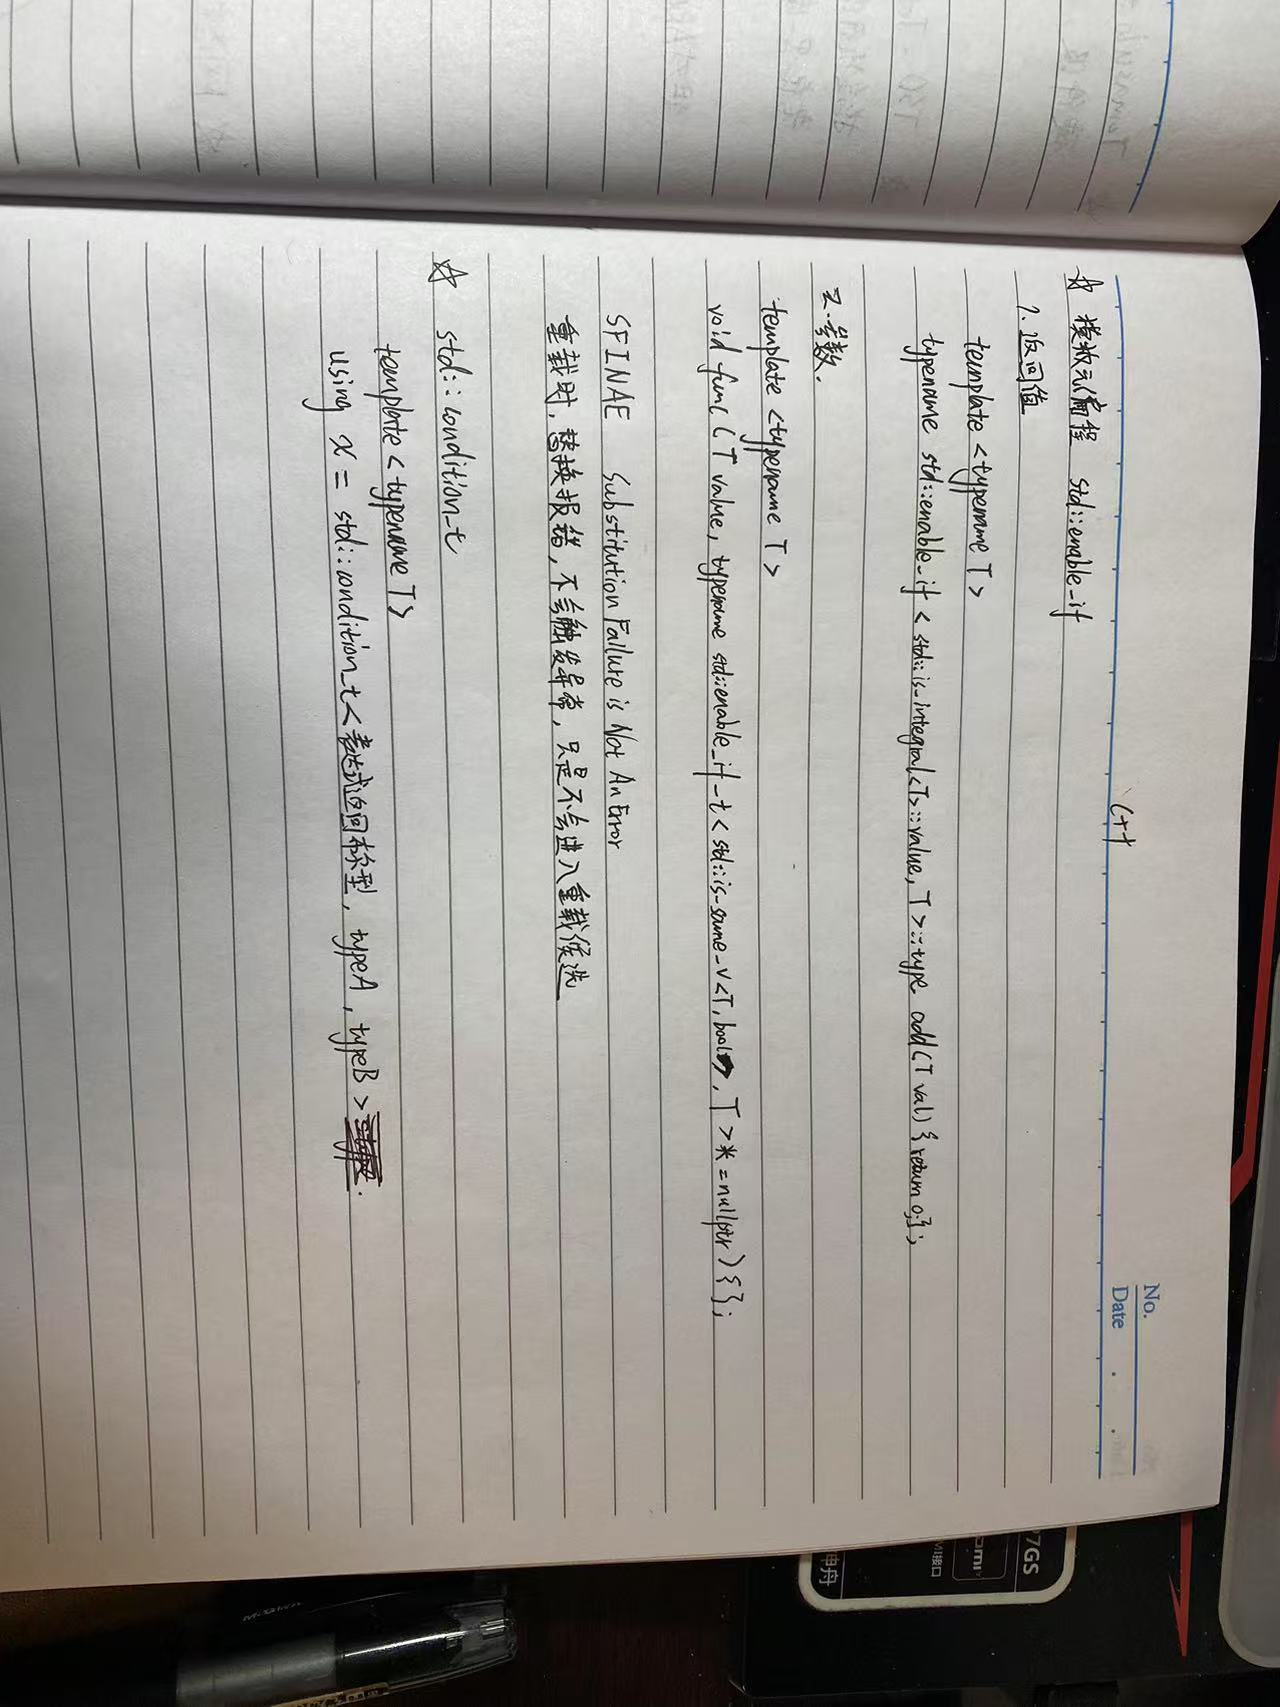 C++
No.
Date
☆ 模板元编程 std::enable_if
1. 返回值
template <typename T>
typename std::enable_if < std::is_integral<T>::value, T>::type add(T val) { return 0;};
2. 参数.
template <typename T>
void func (T value, typename std::enable_if_t < std::is_same_v<T, bool>, T >* = nullptr) { };
SFINAE Substitution Failure is Not An Error
重载时, 替换报错, 不会触发异常, 只是不会进入重载候选
☆ std::condition_t
template < typename T>
using x = std::condition_t < 表达式返回布尔型, typeA, typeB >
7GS
MI接口
神舟